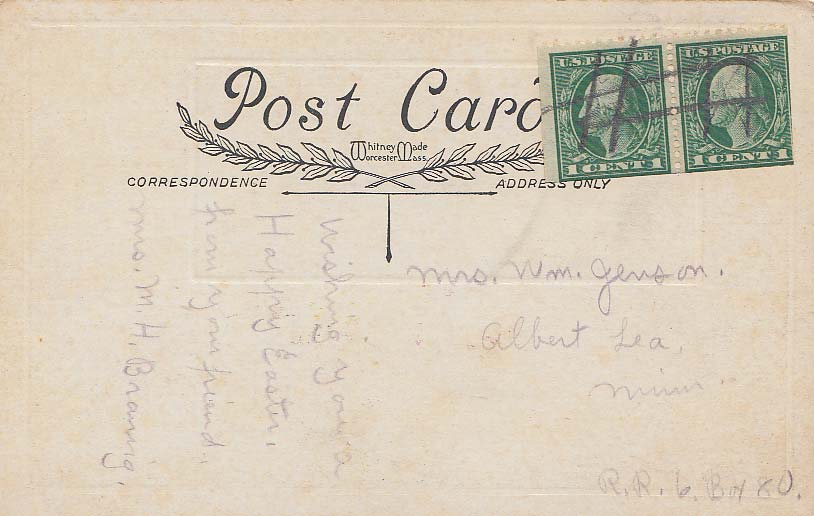 Post Card
Whitney Made
Worcester Mass.
CORRESPONDENCE
ADDRESS ONLY
U.S. POSTAGE
1 CENT 1
U.S. POSTAGE
1 CENT 1
Wishing you a
Happy Easter,
from your friend,
Mrs. M. H.
Mrs. Wm. Jenson.
Albert Lea,
Minn.
R.R. 6. Box